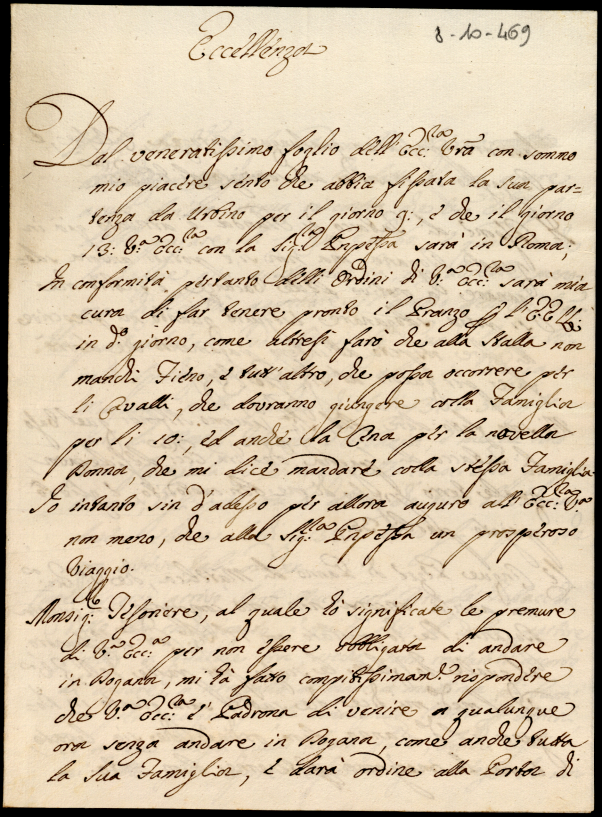 8-10-469
Eccellenza
Dal veneratissimo foglio dell'Ecc:za Vra con sommo
mio piacere sento che abbia fissata la sua par=
tenza da Urbino per il giorno 9:, è che il giorno
13: V.a Ecc:za con la Sig:ra Pnpessa sarà in Roma;
In conformità pertanto delli Ordini di V.a Ecc:za sarà mia
cura di far tenere pronto il Pranzo p l'EE LL:
in do giorno, come altresì farò che alla stalla non
manchi Fieno, è tutt'altro, che possa occorrere per
li Cavalli, che dovranno giungere colla Famiglia
per li 10:, ed anche la Cena per la novella
Donna, che mi dice mandare colla stessa Famiglia.
Io intanto sin d'adesso per allora auguro all'Ecc:za V.a
non meno, che alla Sig:ra Pnpessa un prospero
Viaggio.
Monsig:r Tesoriere, al quale hò significate le premure
di V.a Ecc:a per non essere obbligata di andare
in Dogana, mi hà fatto compitissimam.e rispondere
che V.a Ecc:za è Padrona di venire a qualunque
ora senza andare in Dogana, come anche tutta
la sua Famiglia, è darà ordine alla Porta di